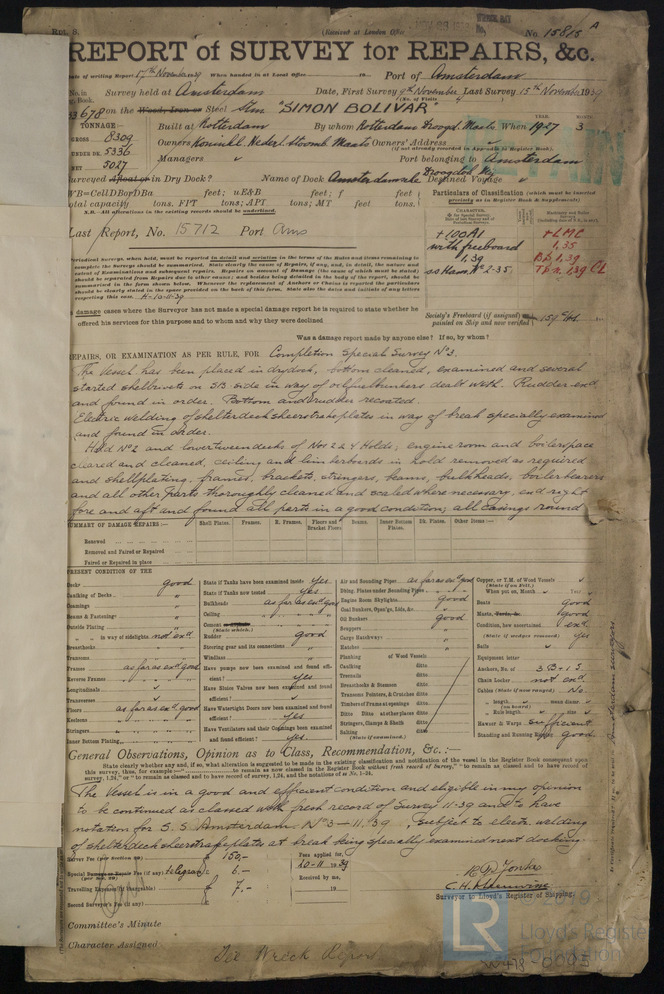 (Received at London Office
No. 15815 A
REPORT of SURVEY for REPAIRS, &c.
Date of writing Report 17th November 1939 When handed in at Local Office 19 Port of Amsterdam
No. in Survey held at Amsterdam Date, First Survey 9th November Last Survey 15th November 1939
Book. (No. of Visits 4
678 on the Wood, Iron or Steel "SIMON BOLIVAR"
TONNAGE:— YEAR. MONTH.
GROSS 8309 Built at Rotterdam By whom Rotterdam Droogd. Maats When 1927 3
UNDER DK. 5336 Owners Koninkl. Nederl. Stoomb. Maats Owners' Address
(if not already recorded in Appendix to Register Book).
NET 5027 Managers Port belonging to Amsterdam
Surveyed Afloat or in Dry Dock? Name of Dock Amsterdamsche Droogdok Destined Voyage
WB=CellDBorDBa feet; uE&B feet; f feet
total capacity tons. FPT tons; APT tons; MT feet tons.
N.B.—All alterations in the existing records should be underlined.
Particulars of Classification (which must be inserted precisely as in Register Book & Supplements)
Last Report, No. 15712 Port Ams
+100A1
with freeboard
1,39
ss Ham. No 2-35
+LMC
1,35
BS 1,39
TS n 1,39 CL
Society's Freeboard (if assigned) as painted on Ship and now verified
damage cases where the Surveyor has not made a special damage report he is required to state whether he
offered his services for this purpose and to whom and why they were declined
Was a damage report made by anyone else? If so, by whom?
REPAIRS, OR EXAMINATION AS PER RULE, FOR Completion Special Survey No 3.
The Vessel has been placed in drydock, bottom cleaned, examined and several
started shellrivets on S/B side in way of oilfuelbunkers dealt with. Rudder exd
and found in order. Bottom and rudder recoated.
Electric welding of shelterdeck sheerstrakeplates in way of break specially examined
and found in order.
Hold No 2 and lower tweendecks of Nos 2 & 4 Holds, engineroom and boilerspace
cleared and cleaned, ceiling and limberboards in hold removed as required
and shellplating, frames, brackets, stringers, beams, bulkheads, boilerbearers
and all other parts thoroughly cleaned and scaled where necessary, exd right
fore and aft and found all parts in a good condition; all casings round
SUMMARY OF DAMAGE REPAIRS:— Shell Plates. Frames. R. Frames. Floors and Bracket Floors Beams. Inner Bottom Plates. Dk. Plates. Other Items:—
Renewed
Removed and Faired or Repaired
Faired or Repaired in place
PRESENT CONDITION OF THE
Decks good
Caulking of Decks
Coamings
Beams & Fastenings
Outside Plating
in way of sidelights not exd
Breasthooks
Transoms
Frames as far as exd good
Reverse Frames
Longitudinals
Transverses
Floors as far as exd good
Keelsons
Stringers
Inner Bottom Plating
State if Tanks have been examined inside Yes
State if Tanks now tested Yes
Bulkheads as far as exd good
Ceiling
Cement
(State which.)
Rudder good
Steering gear and its connections
Windlass
Have pumps now been examined and found efficient? Yes
Have Sluice Valves now been examined and found efficient?
Have Watertight Doors now been examined and found efficient? Yes
Have Ventilators and their Coamings been examined and found efficient? Yes
Air and Sounding Pipes as far as exd good
Dblng. Plates under Sounding Pipes
Engine Room Skylights good
Coal Bunkers, Open'gs, Lids, &c.
Oil Bunkers good
Scuppers
Cargo Hatchways
Hatches
Planking of Wood Vessels
Caulking ditto
Treenails ditto
Breasthooks & Stemson ditto
Transoms Pointers, & Crutches ditto
Timbers of Frame at openings ditto
Ditto Ditto at other places ditto
Stringers, Clamps & Shelfs ditto
Salting ditto
(State if examined.)
Copper, or Y.M. of Wood Vessels
(State if on Felt.)
When put on, Month
Boats good
Masts, good
Condition, how ascertained exd
(State if wedges removed) Yes
Sails
Equipment letter
Anchors, No. of 3B+1S
Chain Locker not exd
Cables (State if now ranged) No.
Hawser & Warps sufficient
Standing and Running Rigging good
General Observations, Opinion as to Class, Recommendation, &c.:—
State clearly whether any and, if so, what alteration is suggested to be made in the existing classification and notification of the vessel in the Register Book consequent upon
this survey, thus, for example:—" to remain as now classed in the Register Book without fresh record of Survey," "to remain as classed and to have record of
survey, 1,24," or "to remain as classed and to have record of survey, 1,24, and the notations of
The Vessel is in a good and efficient condition and eligible in my opinion
to be continued as classed with fresh record of Survey 11-39 and to have
notation for S.S. Amsterdam No 3-11.39, subject to electr. welding
of shelterdeck sheerstrakeplates at break being specially examined next docking.
Survey Fee (per Section 29) £ 150,-
Fees applied for,
20-11 1939
Special Fee (if any) telegram £ 6.-
Received by me,
Travelling Expenses (if chargeable) £ 7,-
19
Second Surveyor's Fee (if any)
Surveyor to Lloyd's Register of Shipping.
Committee's Minute
Character Assigned
See Wreck Report
LR
Lloyd's Register
Foundation